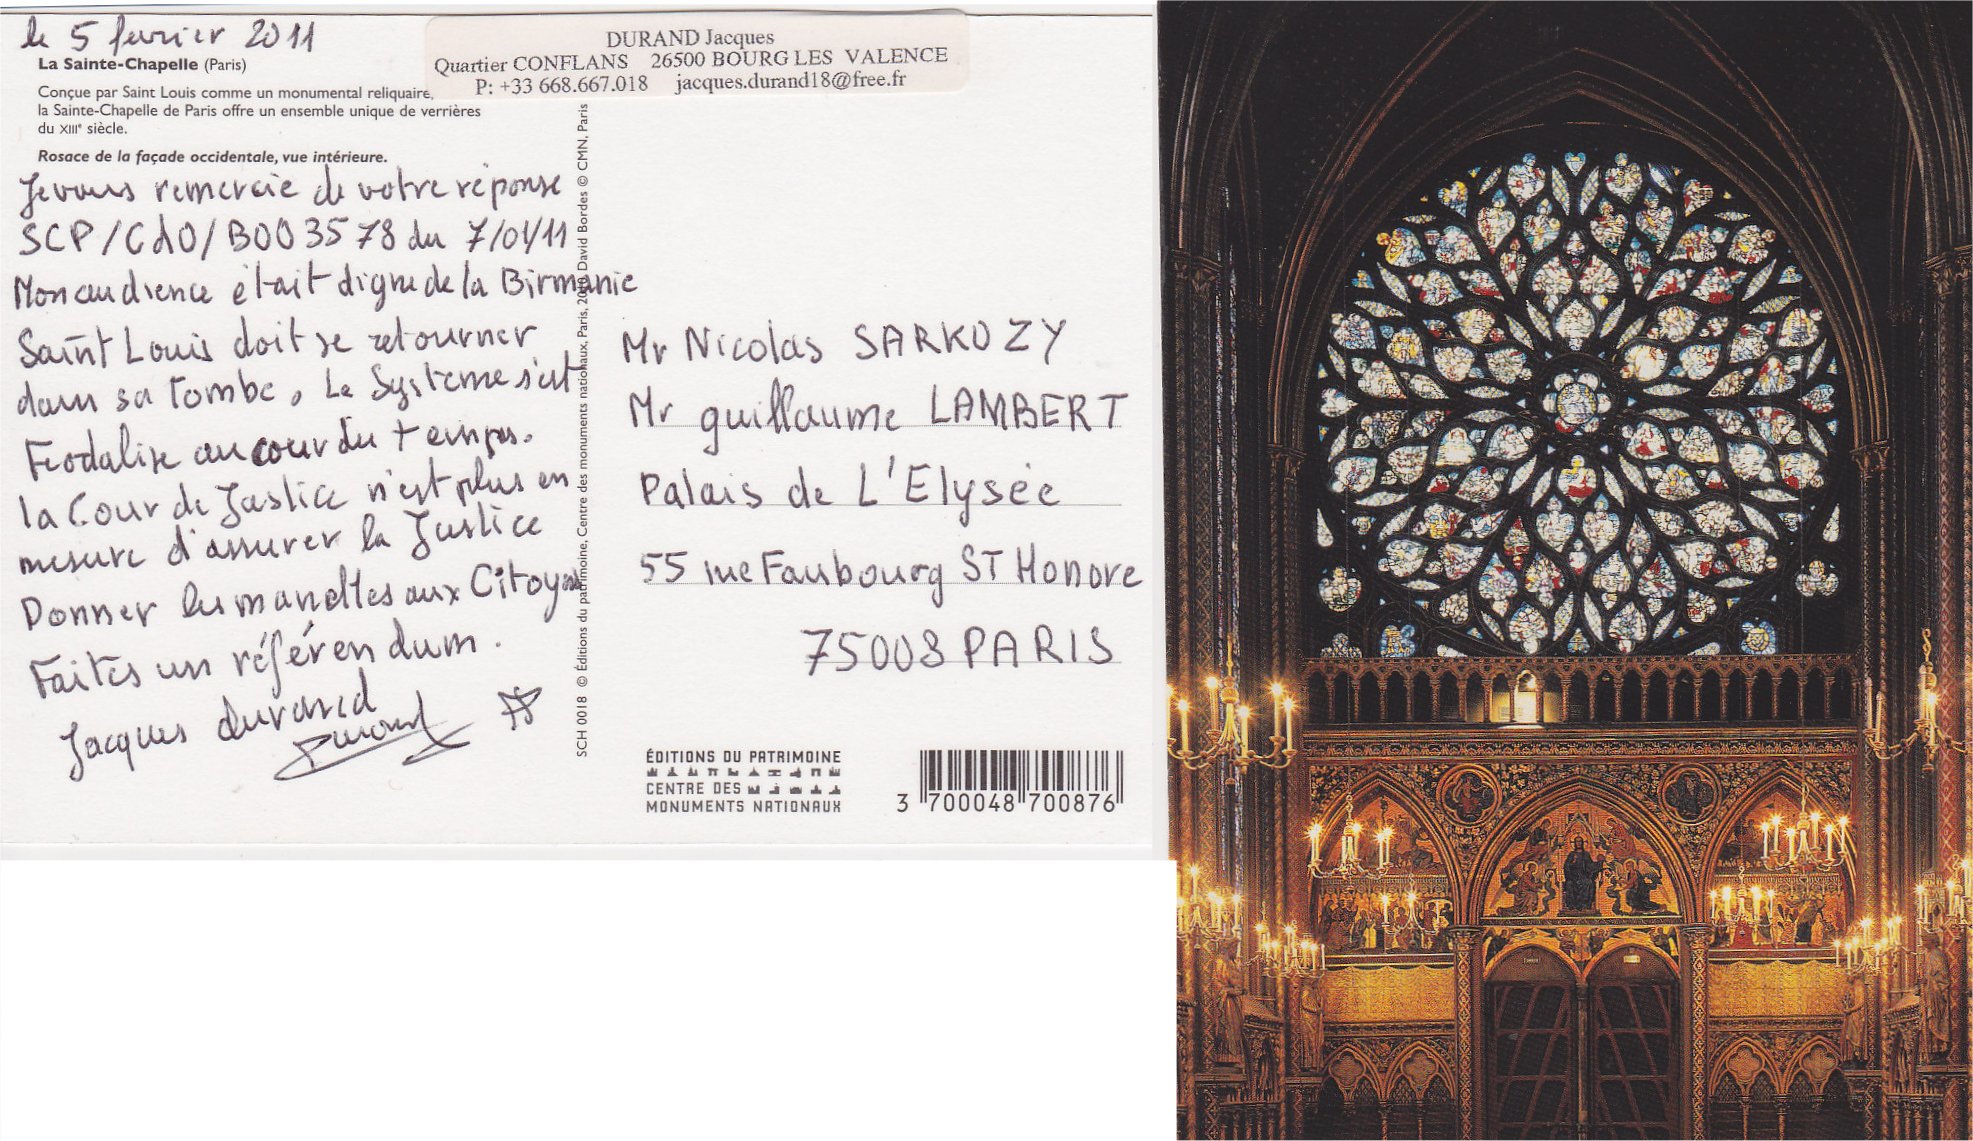 le 5 fevrier 2011
DURAND Jacques
Quartier CONFLANS 26500 BOURG LES VALENCE
P: +33 668.667.018 jacques.durand18@free.fr
La Sainte-Chapelle (Paris)
Conçue par Saint Louis comme un monumental reliquaire,
la Sainte-Chapelle de Paris offre un ensemble unique de verrières
du XIIIe siècle.
Rosace de la façade occidentale, vue intérieure.
Je vous remercie de votre réponse
SCP/CdO/B003578 du 7/01/11
Mon audience était digne de la Birmanie
Saint Louis doit se retourner
dans sa tombe. Le Système s'est
Feodalise au cour du temps.
la Cour de Justice n'est plus en
mesure d'assurer la Justice
Donner les manettes aux Citoyens
Faites un référendum.
Jacques durand
Durand
SCH 0018 © Éditions du patrimoine, Centre des monuments nationaux, Paris, 2010 David Bordes © CMN, Paris
Mr Nicolas SARKOZY
Mr guillaume LAMBERT
Palais de L'Elysée
55 rue Faubourg ST Honore
75008 PARIS
ÉDITIONS DU PATRIMOINE
CENTRE DES
MONUMENTS NATIONAUX
3 700048 700876